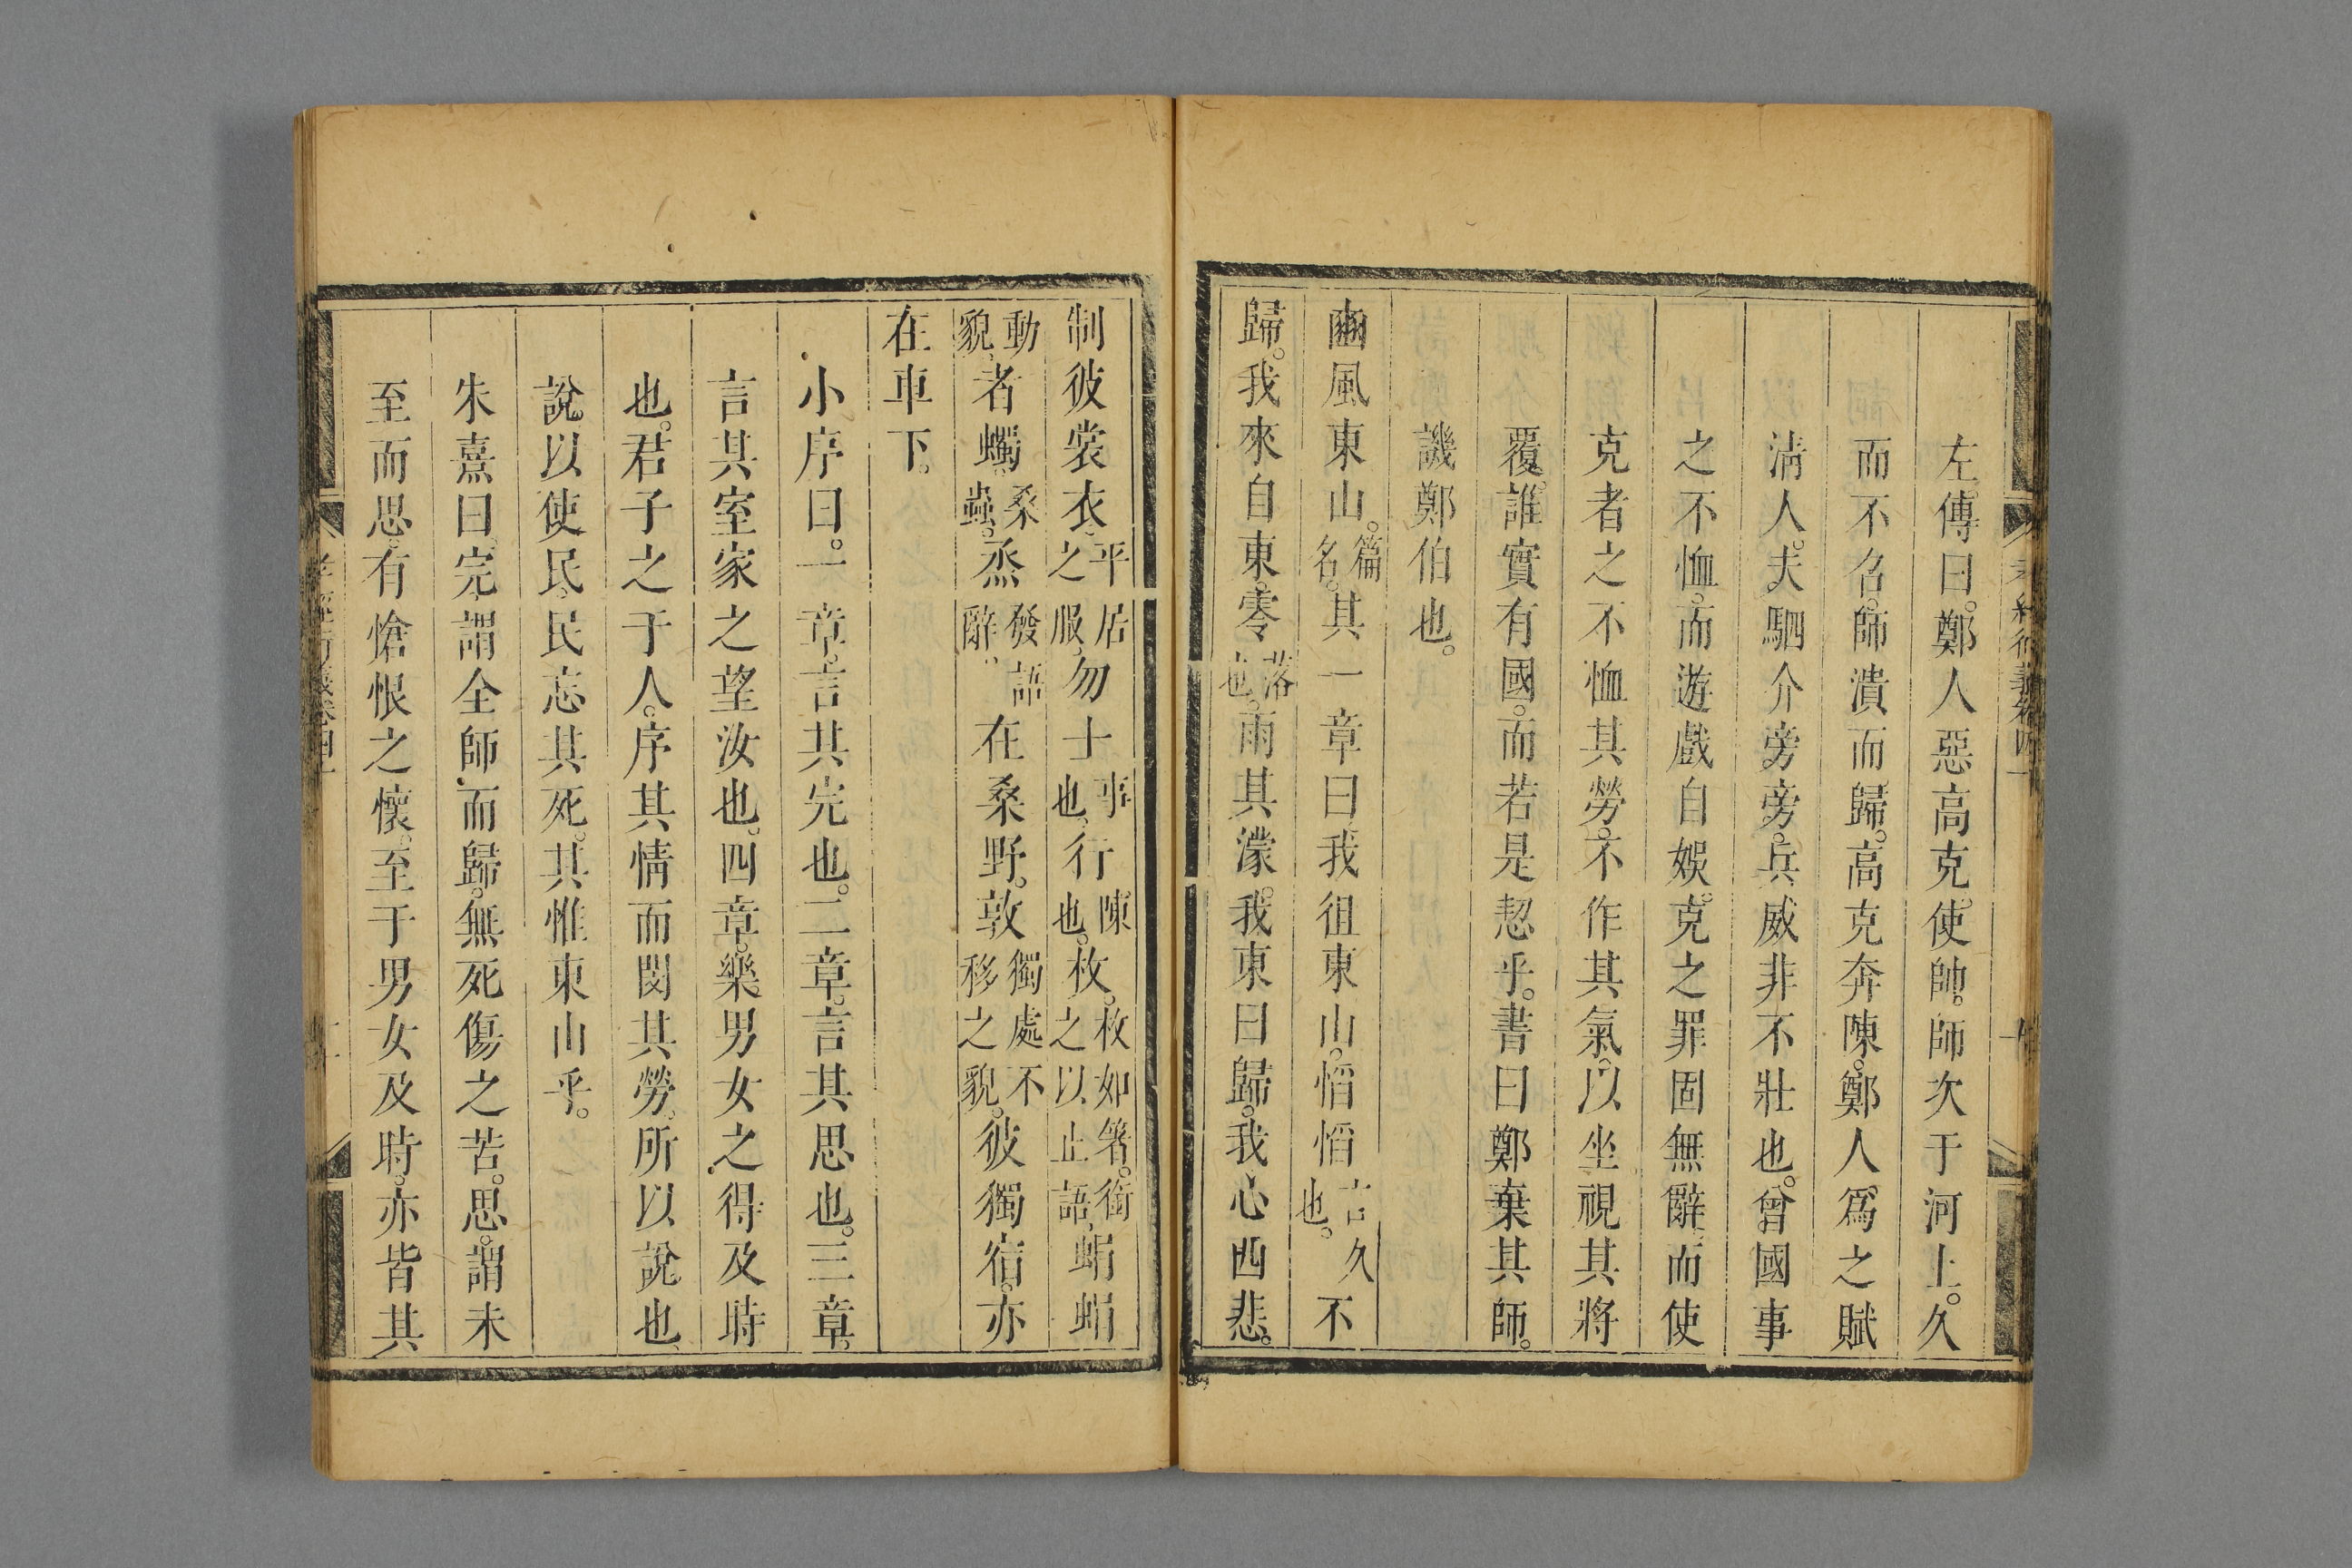 左傳曰。鄭人惡高克。使帥。師次于河上。久
而不召。師潰而歸。高克奔陳。鄭人爲之賦
淸人。夫駟介旁旁。兵威非不壯也。曾國事
之不恤。而遊戲自娛。克之罪固無辭。而使
克者之不恤其勞。不作其氣。以坐視其將
覆。誰實有國。而若是恝乎。書曰鄭棄其師。
譏鄭伯也。
豳風東山。篇名。其一章曰。我徂東山。慆慆言久也。不
歸。我來自東。零落也。雨其濛。我東曰歸。我心西悲。
制彼裳衣。平居之服。勿士事也。行陳也。枚。枚如箸。銜之以止語。蜎蜎
動貌。者蠋。桑蟲。烝發語辭。在桑野。敦獨處不移之貌。彼獨宿。亦
在車下。
小序曰。一章。言其完也。二章。言其思也。三章。
言其室家之望汝也。四章。樂男女之得及時
也。君子之于人。序其情而閔其勞。所以說也。
說以使民。民忘其死。其惟東山乎。
朱熹曰。完。謂全師而歸。無死傷之苦。思。謂未
至而思。有愴恨之懷。至于男女及時。亦皆其